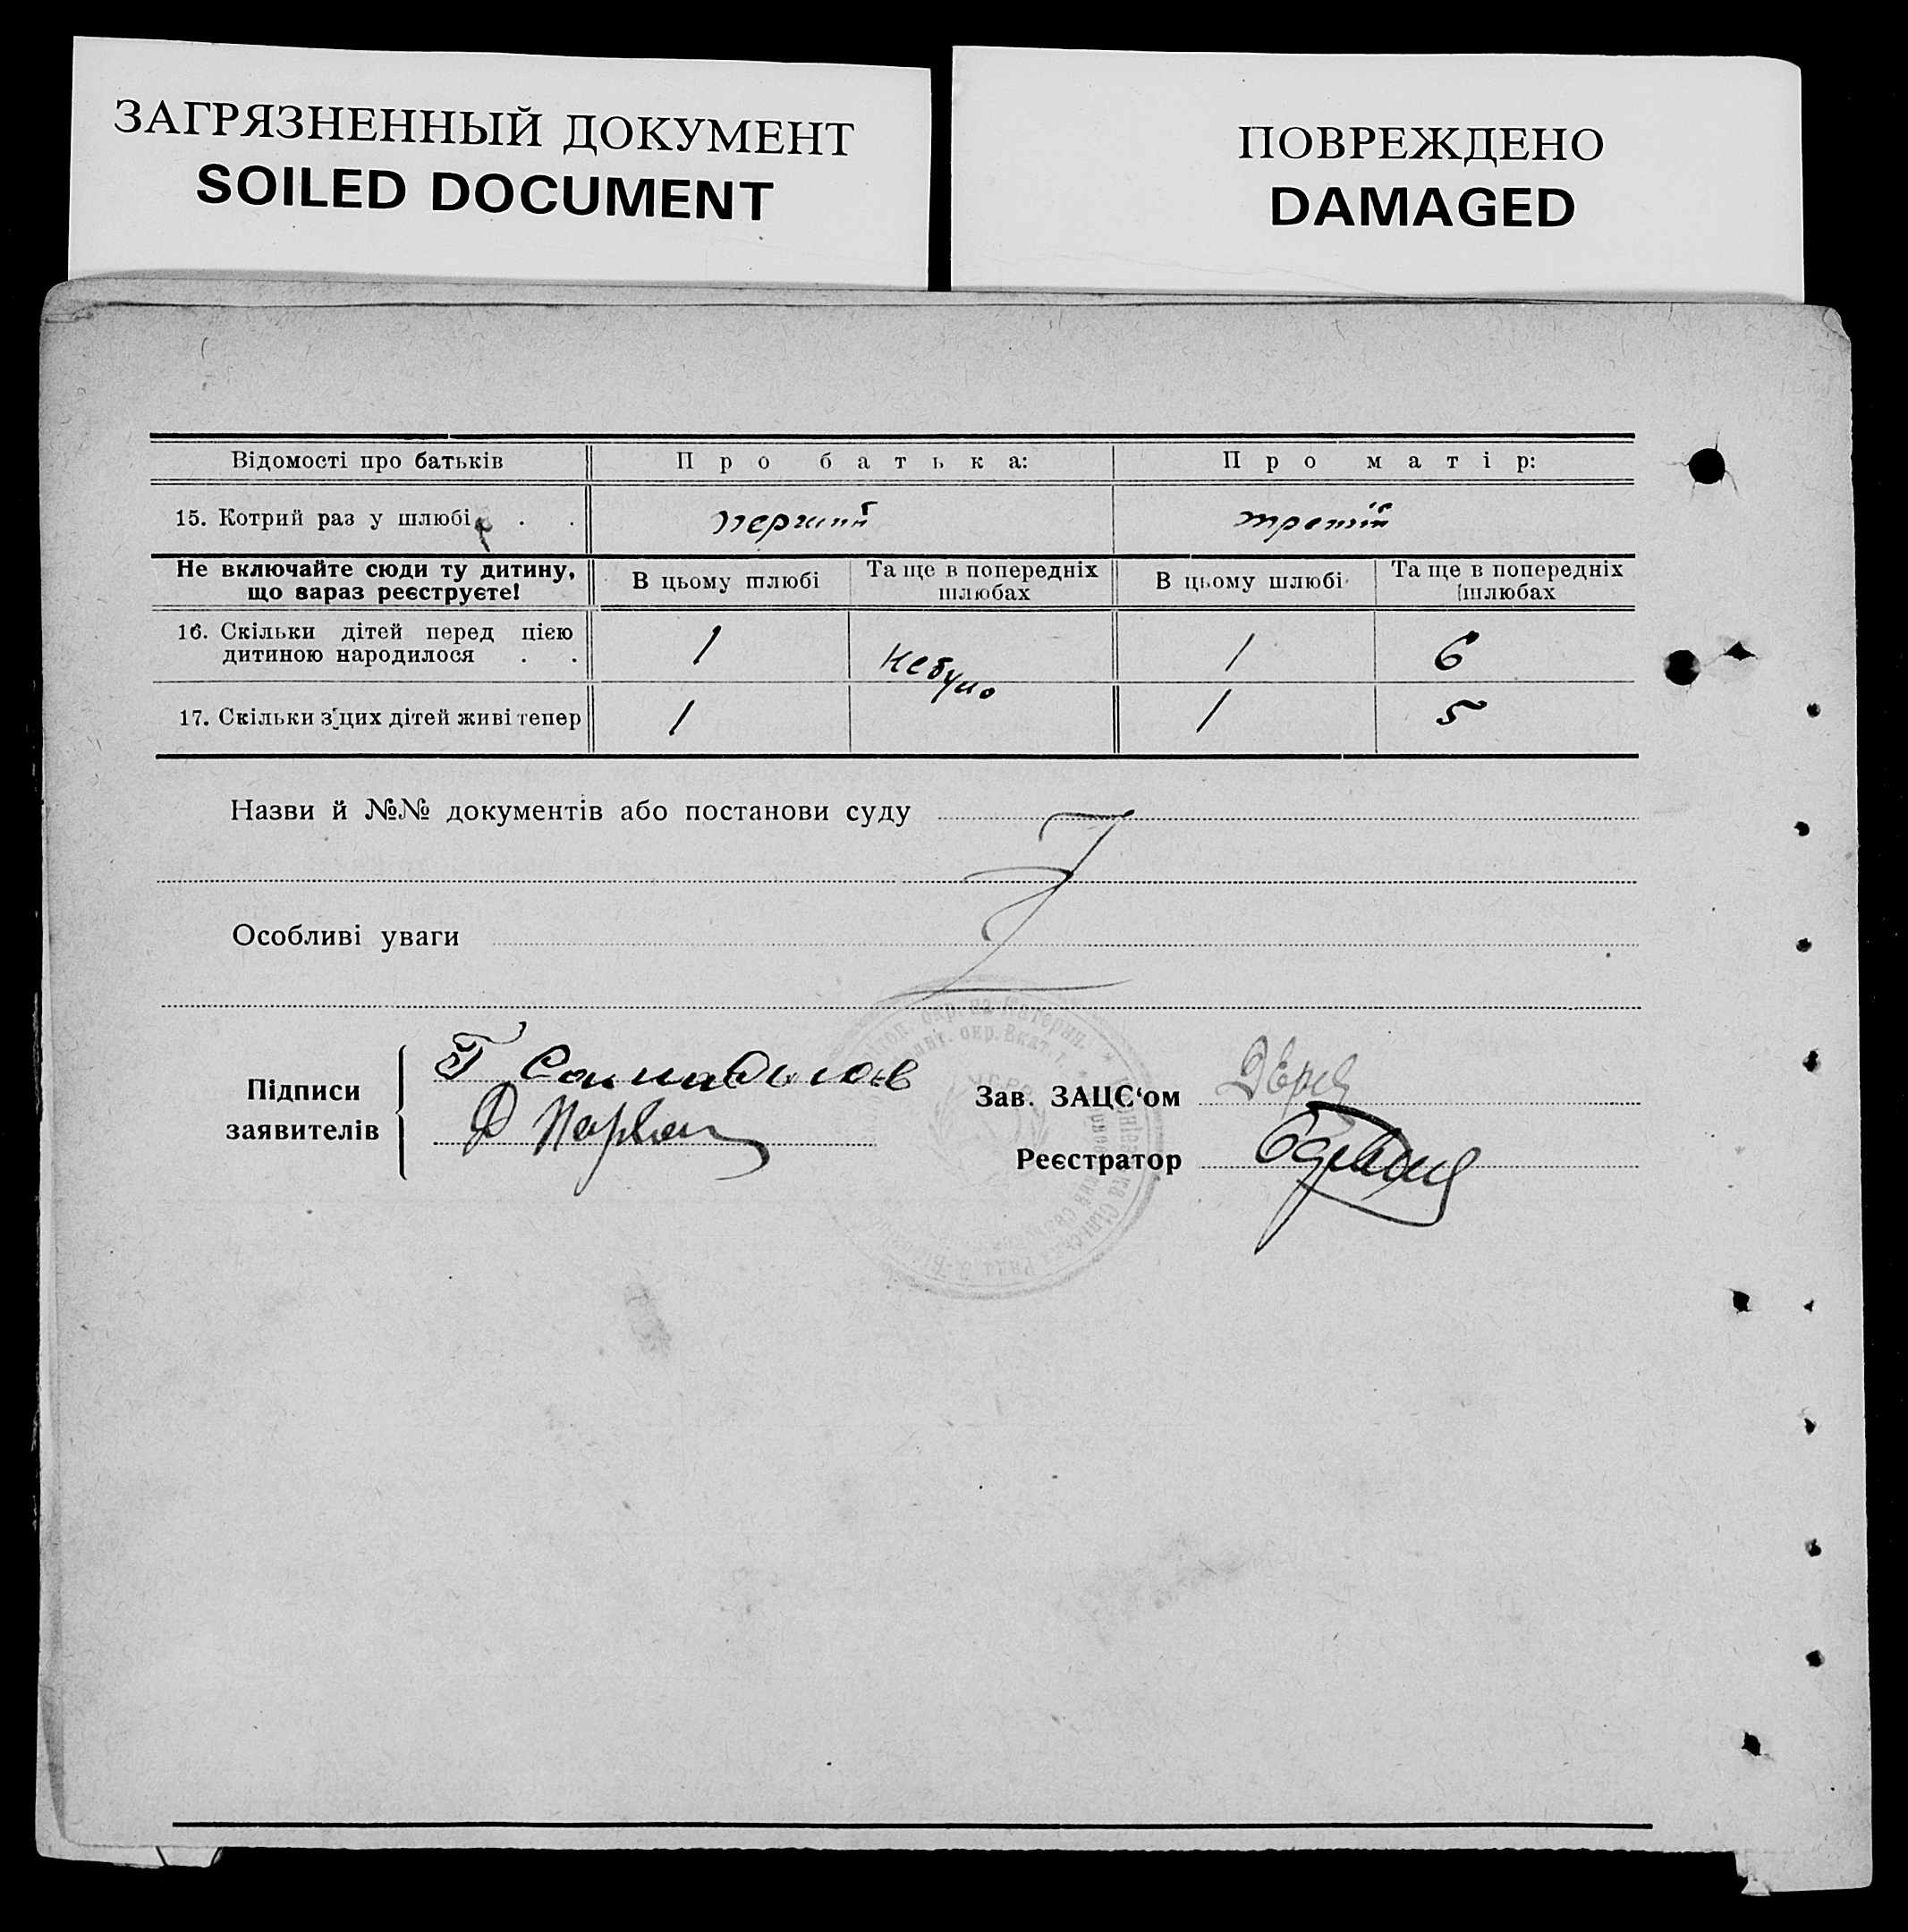 ЗАГРЯЗНЕННЫЙ ДОКУМЕНТ
SOILED DOCUMENT
ПОВРЕЖДЕНО
DAMAGED
Відомості про батьків Про батька: Про матір:
15. Котрий раз у шлюбі . . перший третій
Не включайте сюди ту дитину, що зараз реєструєте! В цьому шлюбі Та ще в попередніх шлюбах В цьому шлюбі Та ще в попередніх шлюбах
16. Скільки дітей перед цією дитиною народилося . . 1 небуло 1 6
17. Скільки з цих дітей живі тепер 1 1 5
Назви й №№ документів або постанови суду
Особливі уваги
Підписи заявителів
Зав. ЗАЦС‘ом
Реєстратор